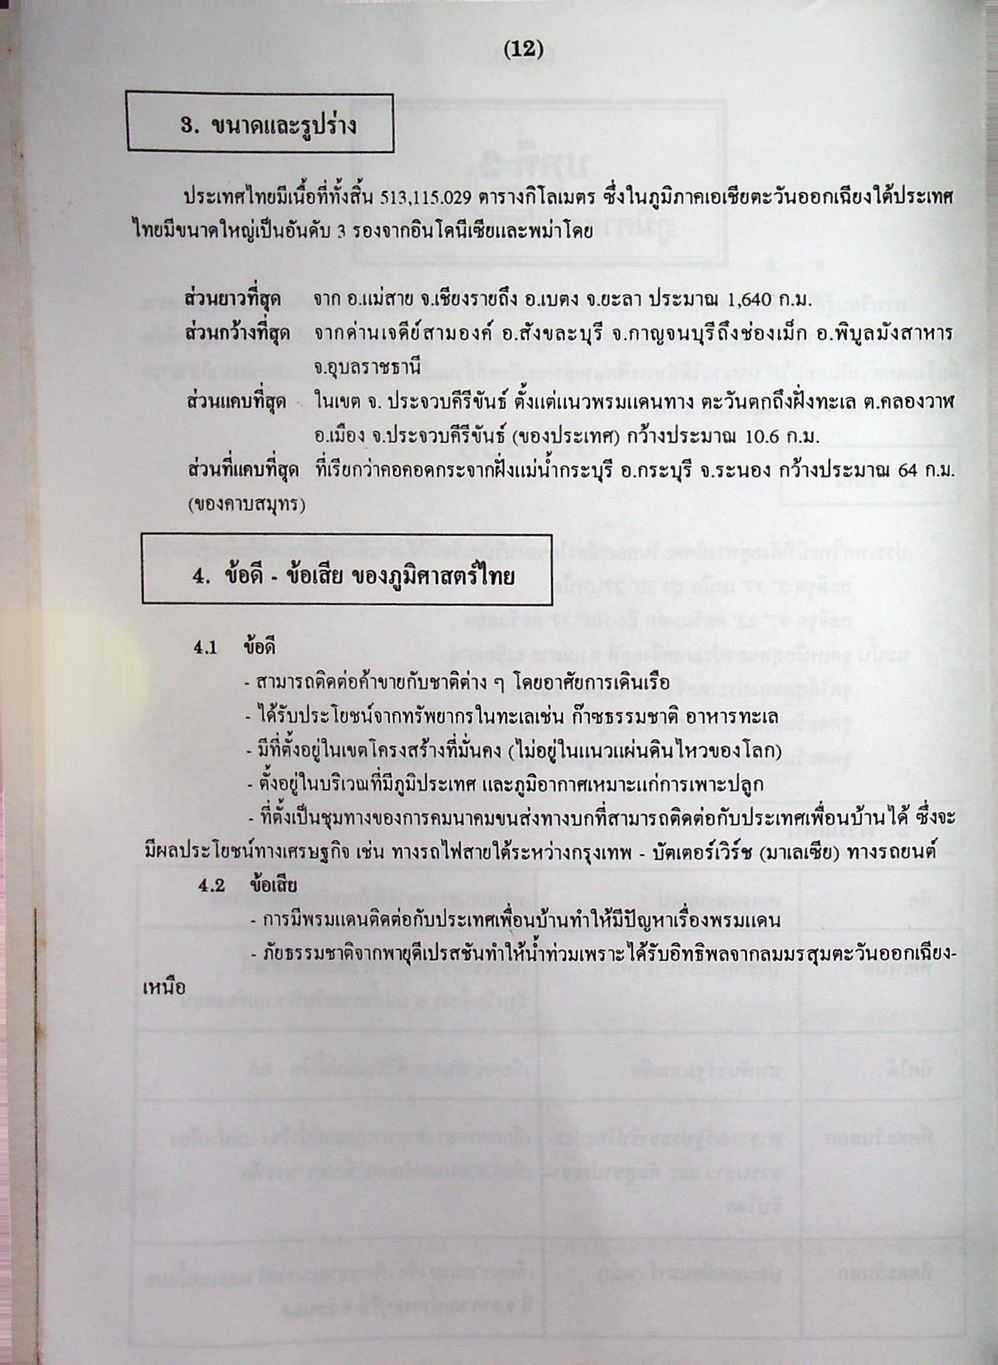 (12)
3. ขนาดและรูปร่าง
ประเทศไทยมีเนื้อที่ทั้งสิ้น 513,115.029 ตารางกิโลเมตร ซึ่งในภูมิภาคเอเชียตะวันออกเฉียงใต้ประเทศ
ไทยมีขนาดใหญ่เป็นอันดับ 3 รองจากอินโดนีเซียและพม่าโดย
ส่วนยาวที่สุด จาก อ.แม่สาย จ.เชียงรายถึง อ.เบตง จ.ยะลา ประมาณ 1,640 ก.ม.
ส่วนกว้างที่สุด จากด่านเจดีย์สามองค์ อ.สังขละบุรี จ.กาญจนบุรีถึงช่องเม็ก อ.พิบูลมังสาหาร
จ.อุบลราชธานี
ส่วนแคบที่สุด ในเขต จ. ประจวบคีรีขันธ์ ตั้งแต่แนวพรมแดนทาง ตะวันตกถึงฝั่งทะเล ต.คลองวาฬ
อ.เมือง จ.ประจวบคีรีขันธ์ (ของประเทศ) กว้างประมาณ 10.6 ก.ม.
ส่วนที่แคบที่สุด ที่เรียกว่าคอคอดกระจากฝั่งแม่น้ำกระบุรี อ.กระบุรี จ.ระนอง กว้างประมาณ 64 ก.ม.
(ของคาบสมุทร)
4. ข้อดี - ข้อเสีย ของภูมิศาสตร์ไทย
4.1 ข้อดี
- สามารถติดต่อค้าขายกับชาติต่าง ๆ โดยอาศัยการเดินเรือ
- ได้รับประโยชน์จากทรัพยากรในทะเลเช่น ก๊าซธรรมชาติ อาหารทะเล
- มีที่ตั้งอยู่ในเขตโครงสร้างที่มั่นคง (ไม่อยู่ในแนวแผ่นดินไหวของโลก)
- ตั้งอยู่ในบริเวณที่มีภูมิประเทศ และภูมิอากาศเหมาะแก่การเพาะปลูก
- ที่ตั้งเป็นชุมทางของการคมนาคมขนส่งทางบกที่สามารถติดต่อกับประเทศเพื่อนบ้านได้ ซึ่งจะ
มีผลประโยชน์ทางเศรษฐกิจ เช่น ทางรถไฟสายใต้ระหว่างกรุงเทพ - บัตเตอร์เวิร์ช (มาเลเซีย) ทางรถยนต์
4.2 ข้อเสีย
- การมีพรมแดนติดต่อกับประเทศเพื่อนบ้านทำให้มีปัญหาเรื่องพรมแดน
- ภัยธรรมชาติจากพายุดีเปรสชันทำให้น้ำท่วมเพราะได้รับอิทธิพลจากลมมรสุมตะวันออกเฉียง-
เหนือ